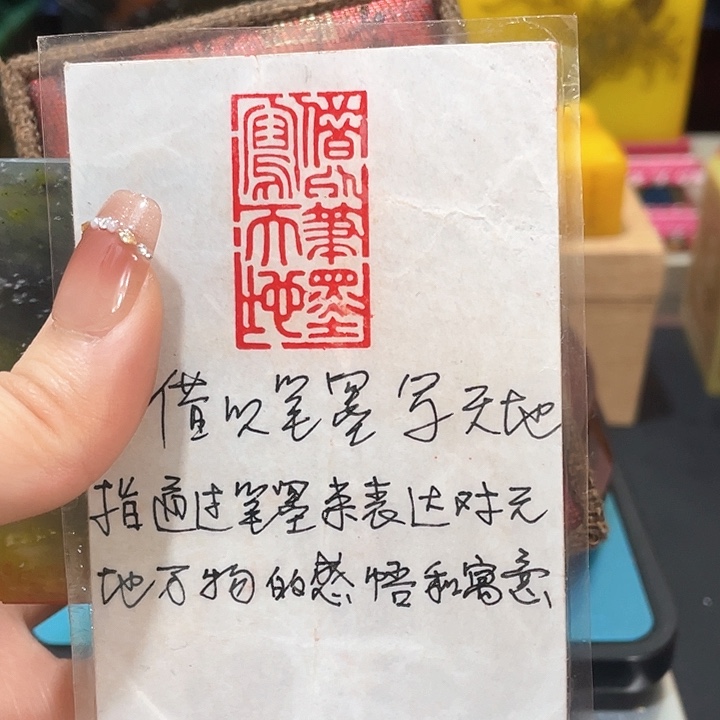 借以筆墨
寫天地
借以笔墨写天地
指通过笔墨来表达对天
地万物的感悟和寓意